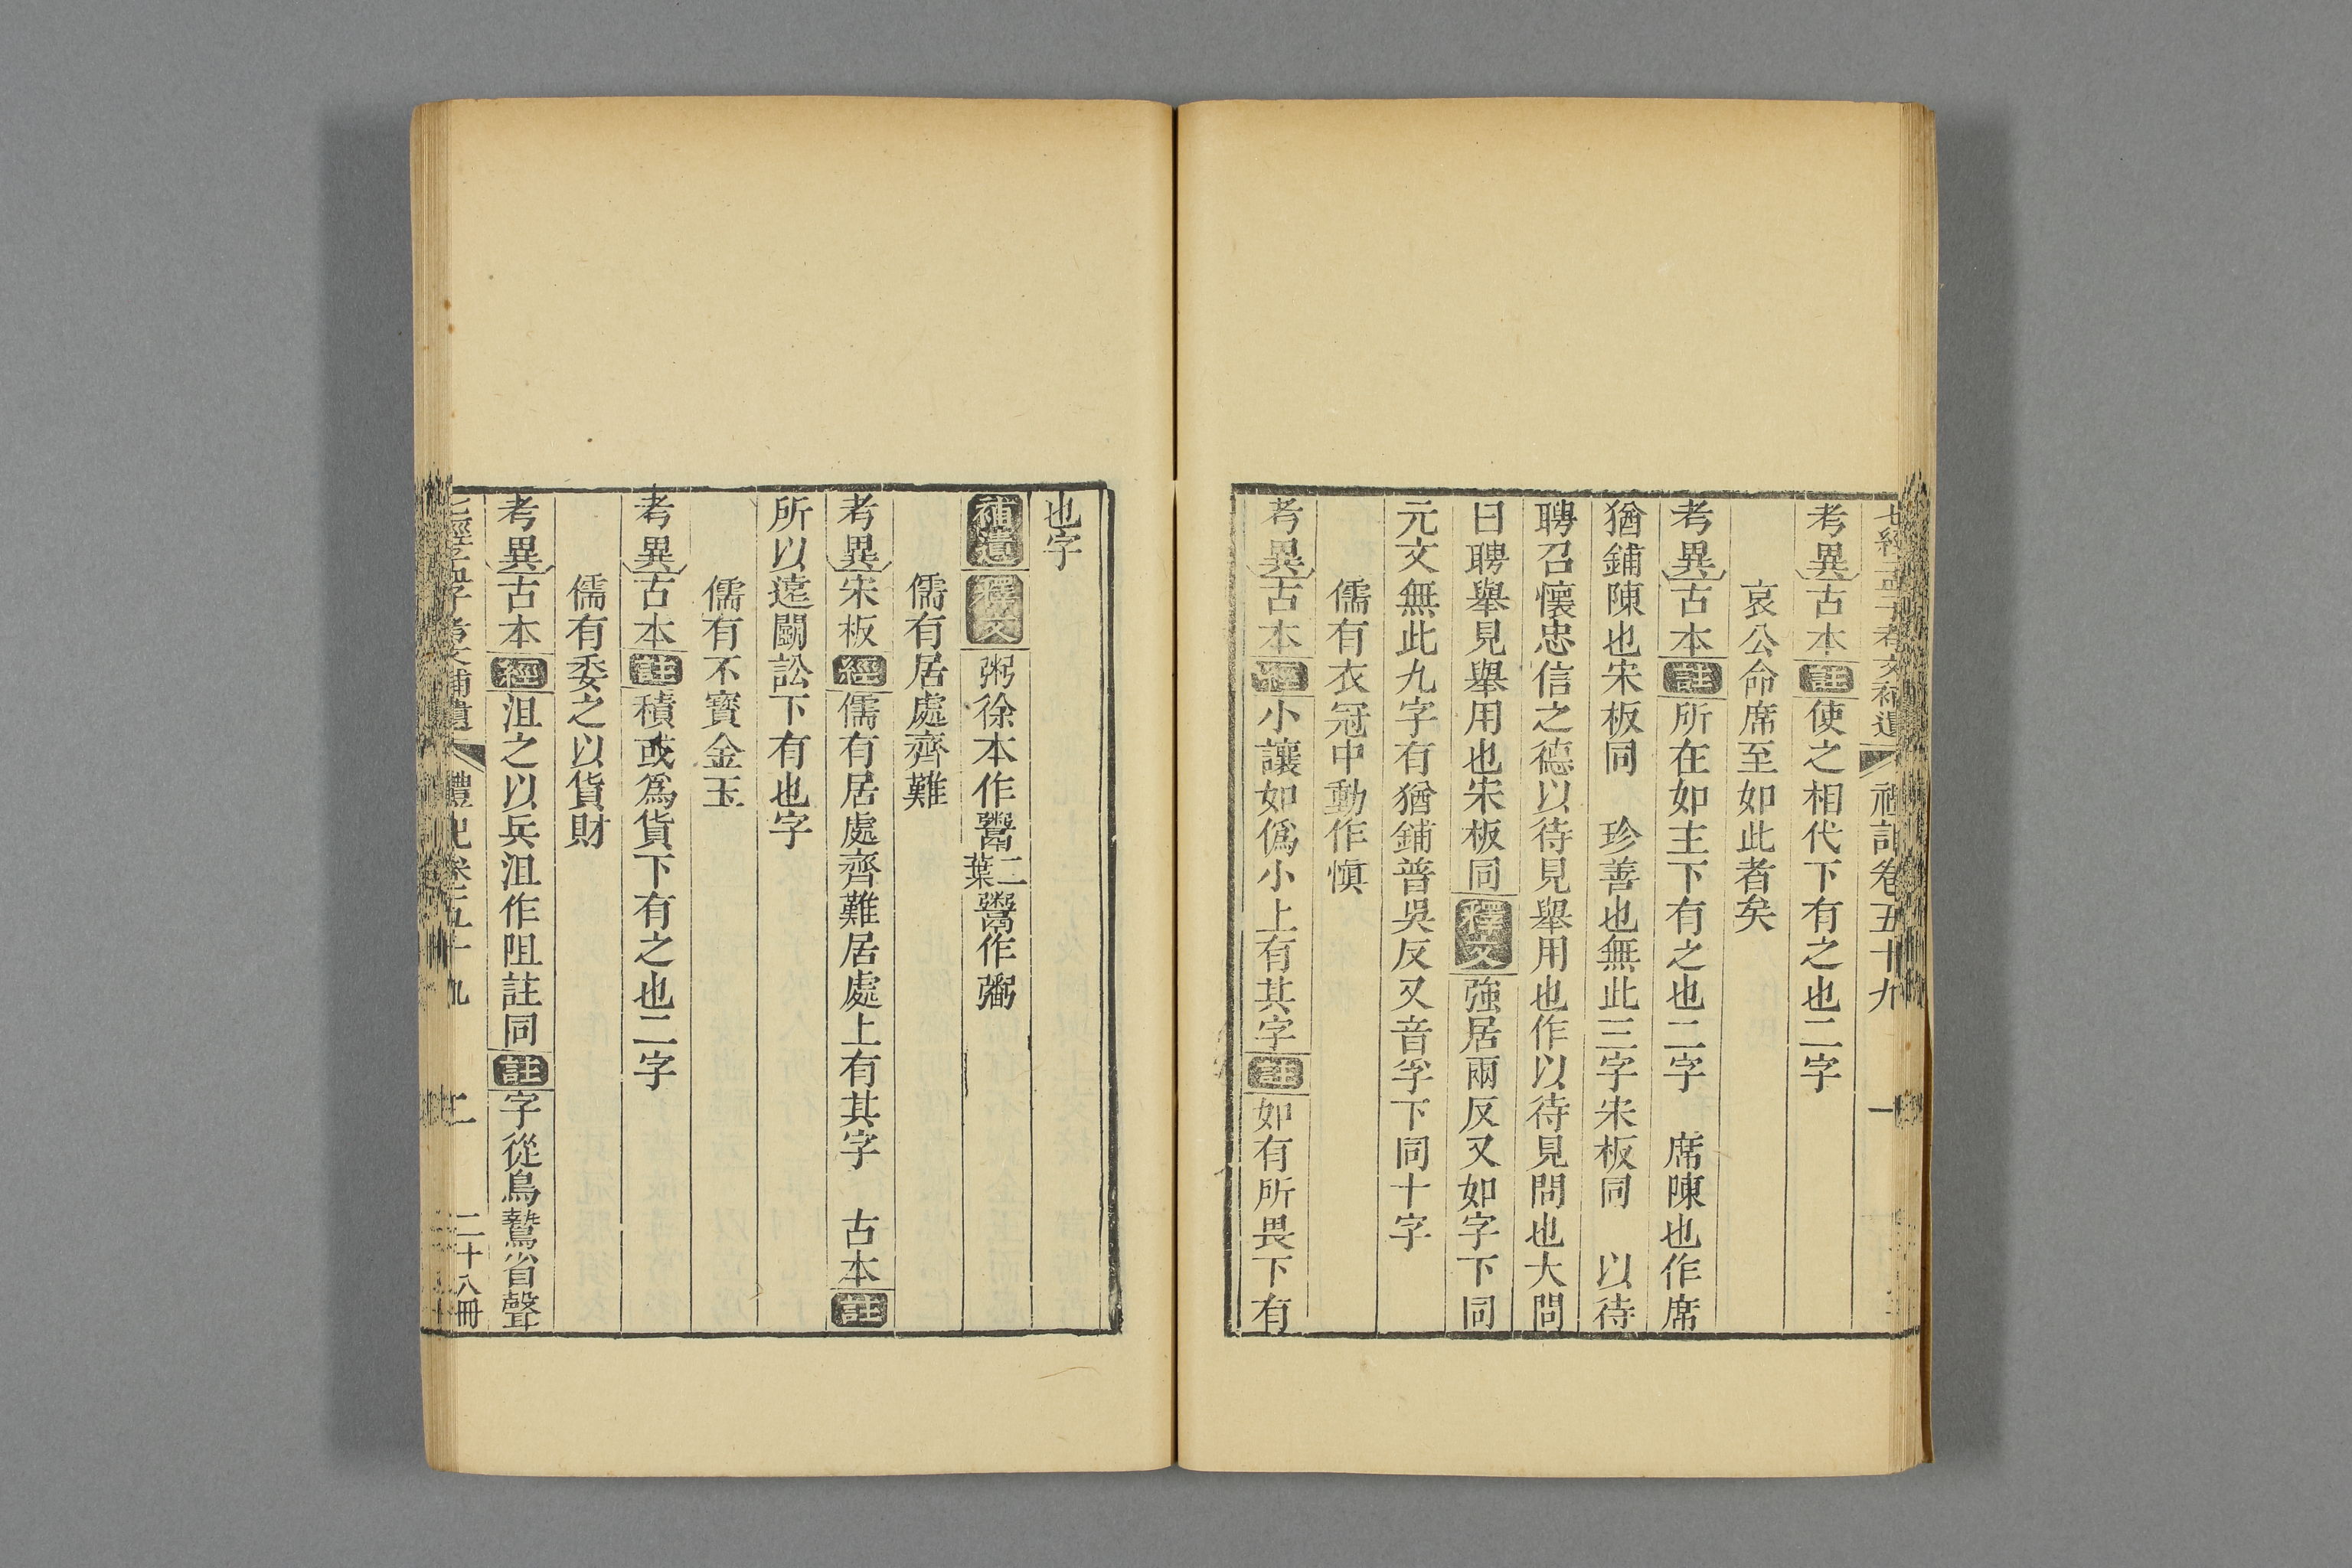 七經孟子考文補遺 禮記卷五十九 一
考異古本註使之相代下有之也二字
哀公命席至如此者矣
考異古本註所在如主下有之也二字 席陳也作席
猶鋪陳也宋板同 珍善也無此三字宋板同 以待
聘召懷忠信之德以待見舉用也作以待見問也大問
曰聘舉見舉用也宋板同釋文強居兩反又如字下同
元文無此九字有猶鋪普吳反又音孚下同十字
儒有衣冠中動作愼
考異古本經小讓如僞小上有其字註如有所畏下有
也字
補遺釋文粥徐本作鬻二葉鬻作粥
儒有居處齊難
考異宋板經儒有居處齊難居處上有其字 古本註
所以遠鬭訟下有也字
儒有不寶金玉
考異古本註積或爲貨下有之也二字
儒有委之以貨財
考異古本經沮之以兵沮作阻註同註字從鳥鷙省聲
七經孟子考文補遺 禮記卷五十九 二 二十八冊